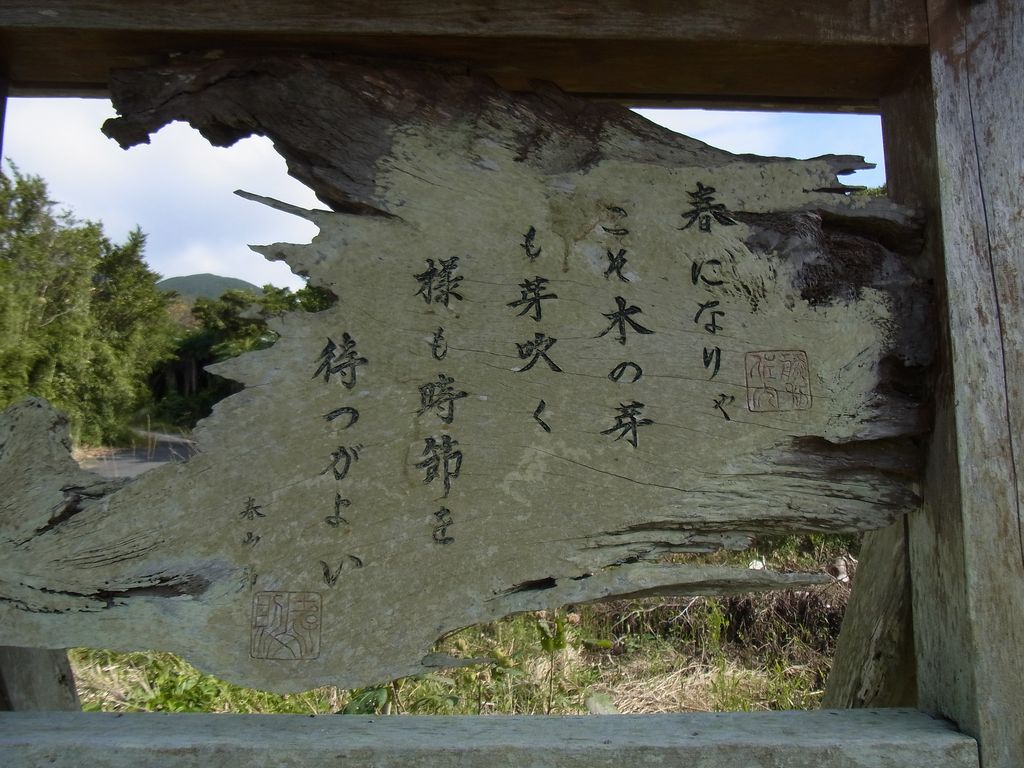 春になりや
こそ木の芽
も芽吹く
様も時節を
待つがよい
春山